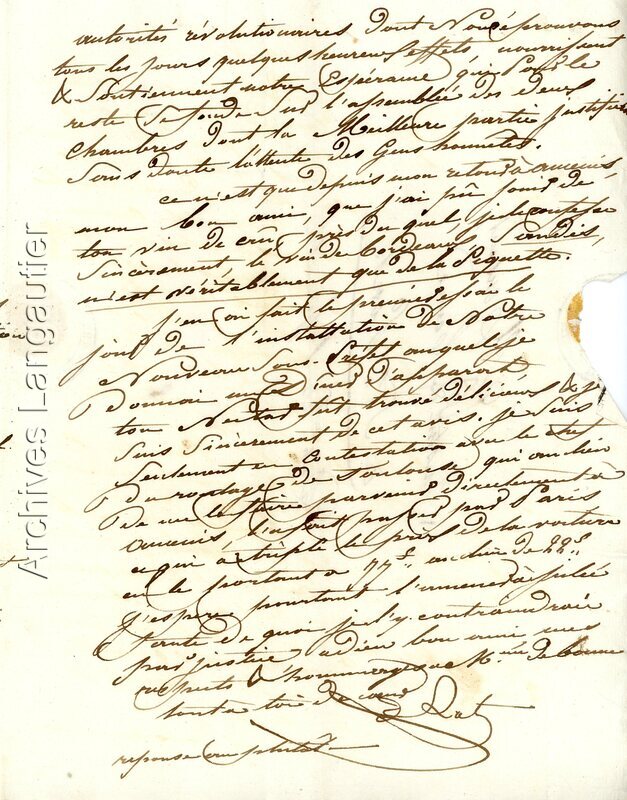 autorités révolutionaires dont Nous éprouvons
tous les jours quelques heureux effets nourrissent
& Soutiennent notre Espérance qui Pour le
reste Se fonde Sur l'assemblée des deux
chambres dont la Meilleure partie justifiera
Sans doute l'attente des Gens honnêtes.
ce n'est que depuis mon retour à ancenis
mon bon ami, que j'ai pû jouir de
ton vin de crû près du quel je le confesse
Sincèrement le vin de bordeaux, Sandis,
n'est véritablement que de la Piquette.
j'en ai fait le premier essai le
jour de l'installation de Notre
Nouveau Sous-Préfet auquel je
Donnai un Diner D'apparat
ton Nectar fut trouvé délicieux & je
Suis Sincèrement de cet avis. je Suis
Seulement en contestation avec le
Du roulage de Toulouse qui au lieu
De me le faire parvenir directement à
ancenis, l'a fait passer par Paris
ce qui a triplé le prix de la voiture
en le portant à 77# au lieu de 22#
j'espère pourtant l'amener à
faute de quoi je l'y contraindrai
par justice, adieu bon ami mes
respects & hommages a Mme de
tout a toi de cœur
reponse au plutôt
Archives Langautier